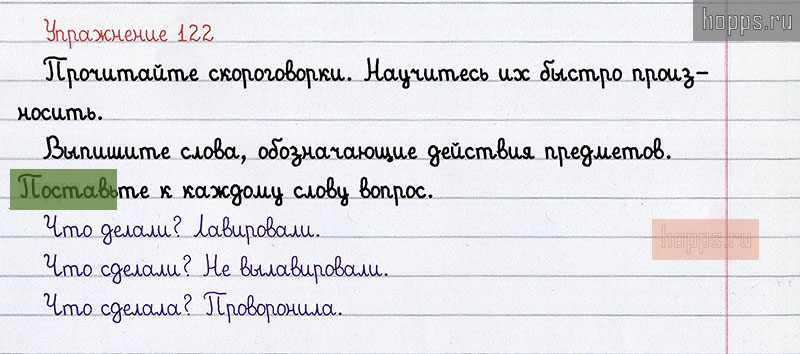 hopps.ru
Упражнение 122
Прочитайте скороговорки. Научитесь их быстро произ-
носить.
Выпишите слова, обозначающие действия предметов.
Поставьте к каждому слову вопрос.
Что делали? Лавировали.
hopps.ru
Что сделали? Не вылавировали.
Что сделала? Проворонила.